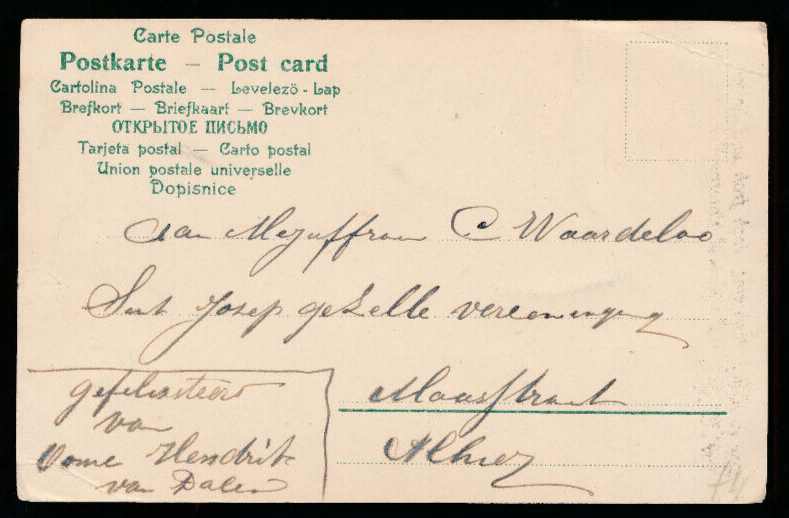 Carte Postale
Postkarte — Post card
Cartolina Postale — Levelezö-Lap
Brefkort — Briefkaart — Brevkort
ОТКРЫТОЕ ПИСЬМО
Tarjeta postal — Carto postal
Union postale universelle
Dopisnice
Aan Mejuffrou C Waardeloo
Sint Josep gezelle vereeneging
Maasstraat
Alhier
gefeliesteerd
van
Oome Hendrik
van Dalen